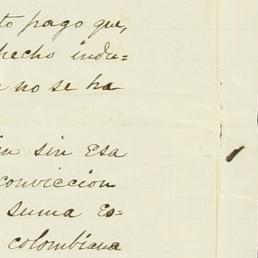 to pago que,
hecho indu=
no se ha
sin Esa
conviccion
suma es=
colombiana